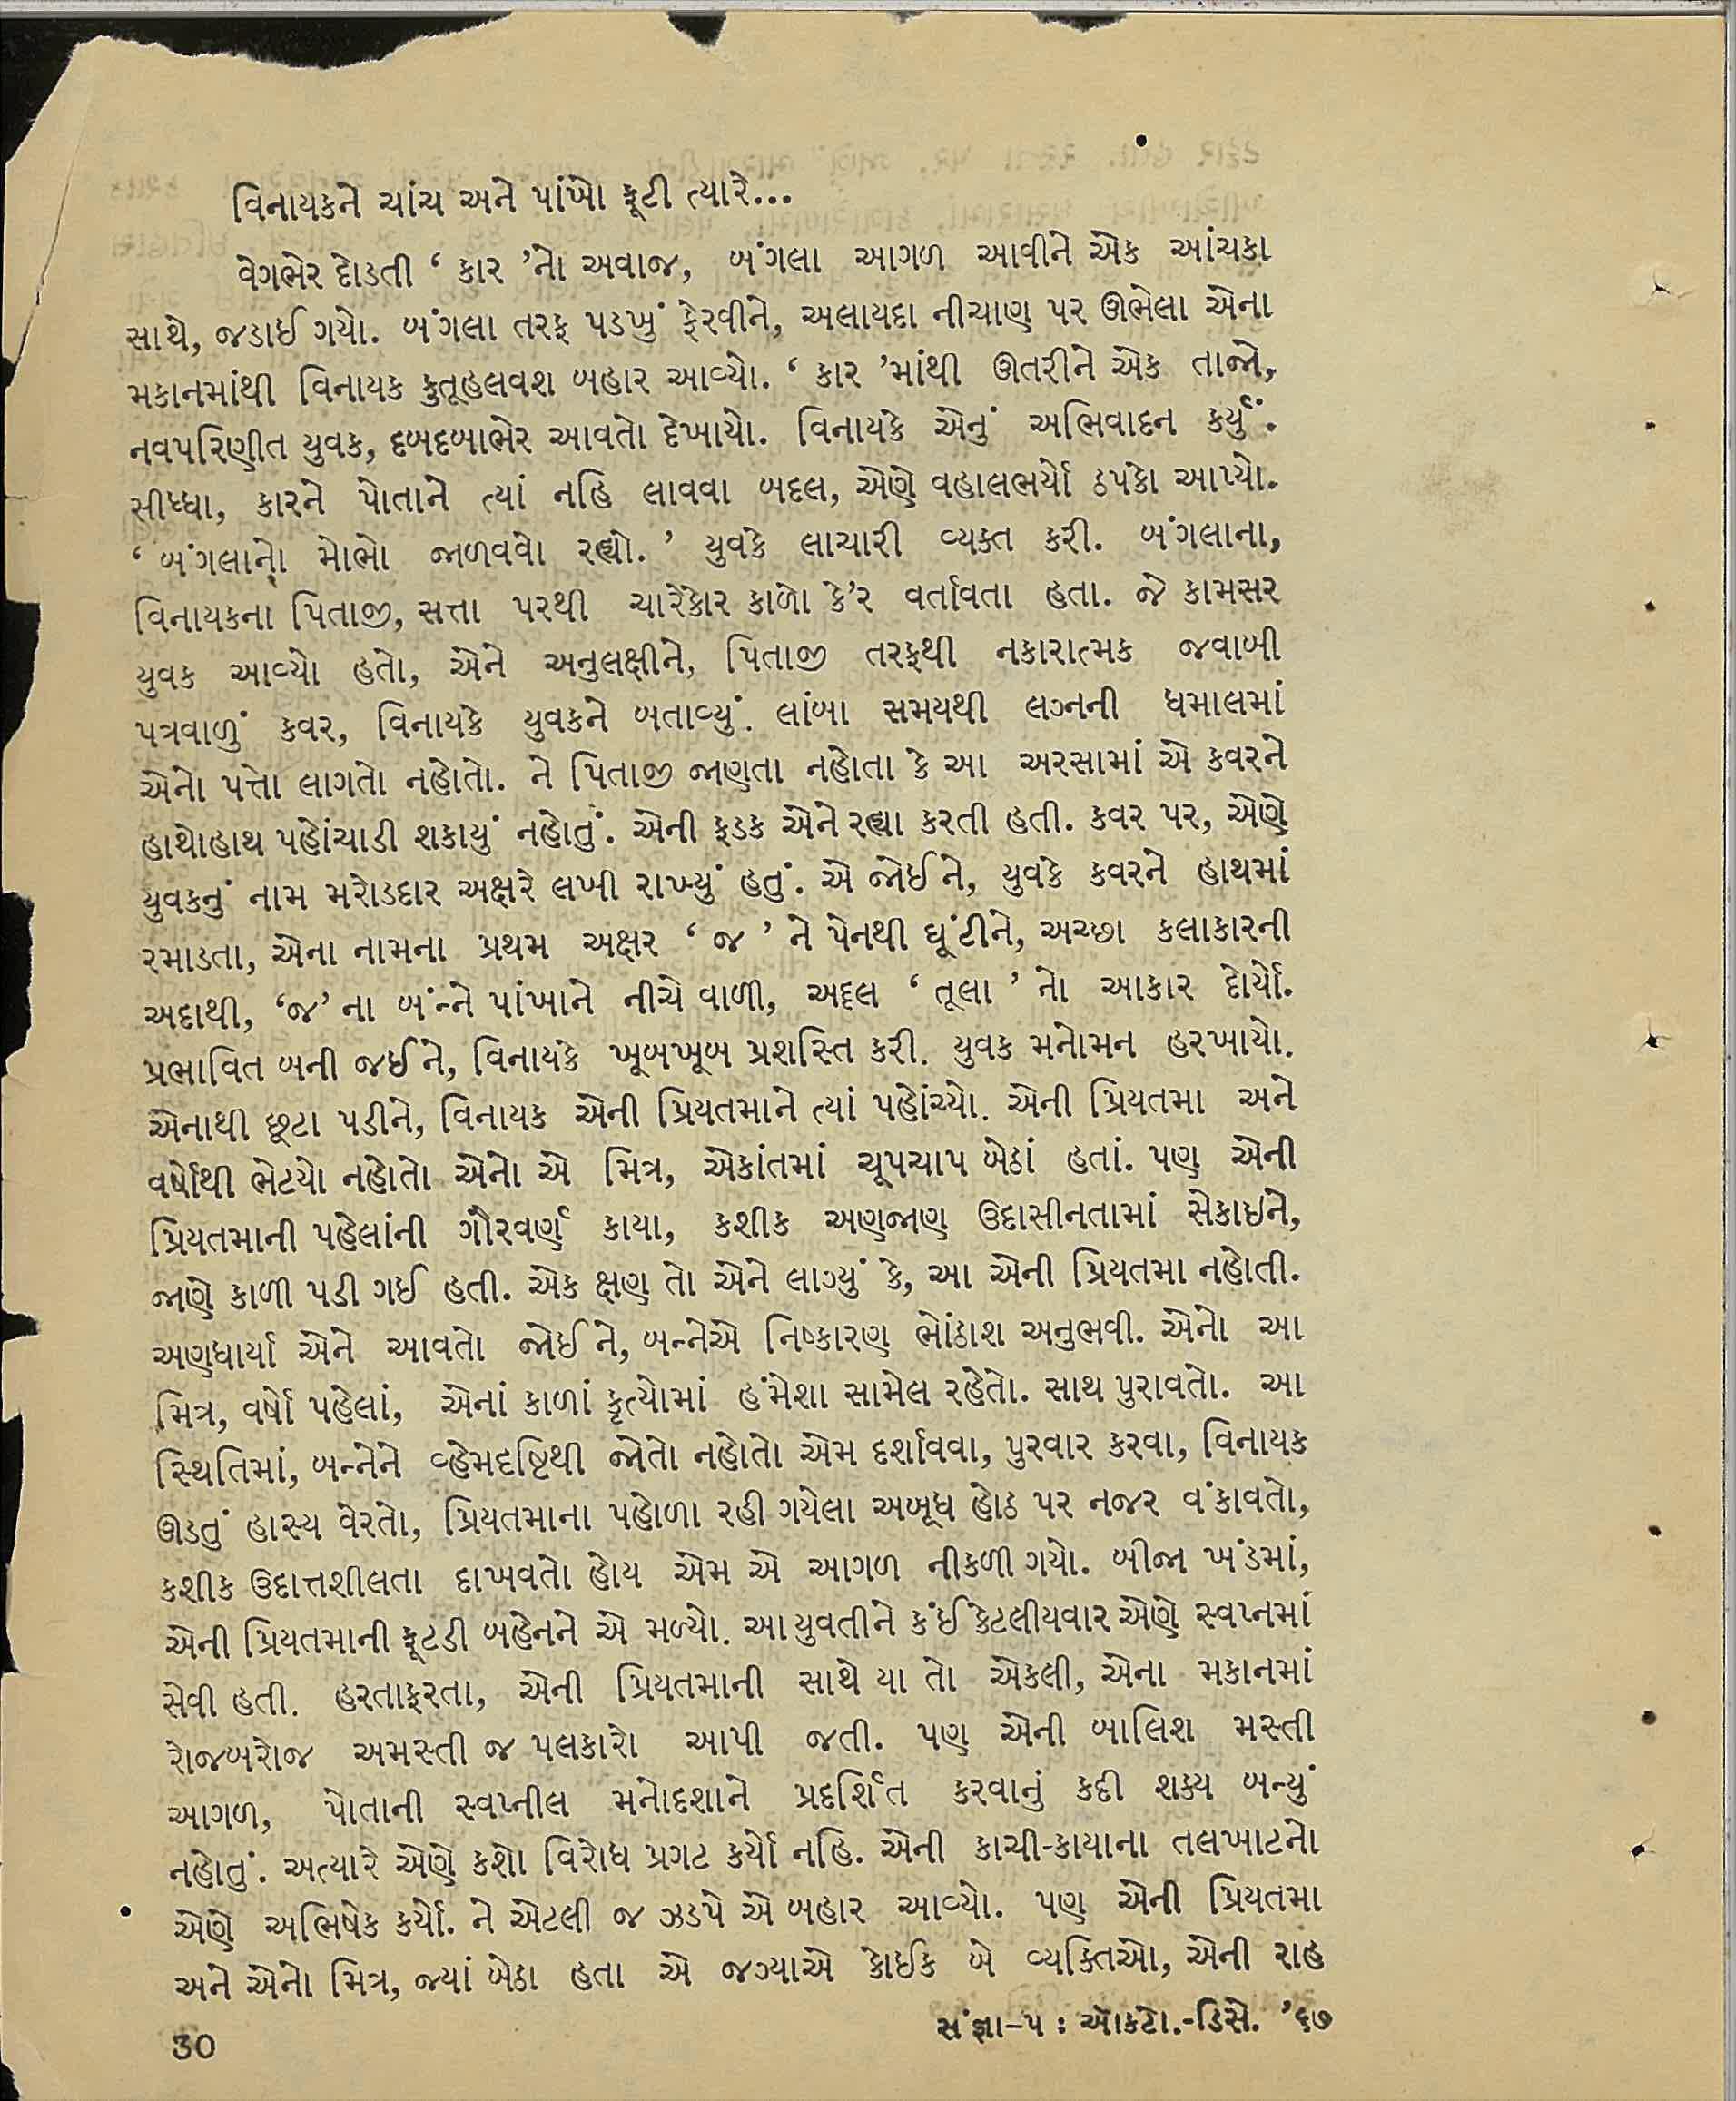 વિનાયકને ચાંચ અને પાંખો ફૂટી ત્યારે...
વેગભેર દોડતી ‘ કાર ’નો અવાજ, બંગલા આગળ આવીને એક આંચકા
સાથે, જડાઈ ગયો. બંગલા તરફ પડખું ફેરવીને, અલાયદા નીચાણ પર ઊભેલા એના
મકાનમાંથી વિનાયક કુતૂહલવશ બહાર આવ્યો. ‘ કાર ’માંથી ઊતરીને એક તાજો,
નવપરિણીત યુવક, દબદબાભેર આવતો દેખાયો. વિનાયકે એનું અભિવાદન કર્યું.
સીધ્ધા, કારને પોતાને ત્યાં નહિ લાવવા બદલ, એણે વહાલભર્યો ઠપકો આપ્યો.
‘ બંગલાનો મોભો જાળવવો રહ્યો. ’ યુવકે લાચારી વ્યક્ત કરી. બંગલાના,
વિનાયકના પિતાજી, સત્તા પરથી ચારેકોર કાળો કે’ર વર્તાવતા હતા. જે કામસર
યુવક આવ્યો હતો, એને અનુલક્ષીને, પિતાજી તરફથી નકારાત્મક જવાબી
પત્રવાળું કવર, વિનાયકે યુવકને બતાવ્યું. લાંબા સમયથી લગ્નની ધમાલમાં
એનો પત્તો લાગતો નહોતો. ને પિતાજી જાણતા નહોતા કે આ અરસામાં એ કવરને
હાથોહાથ પહોંચાડી શકાયું નહોતું. એની ફડક એને રહ્યા કરતી હતી. કવર પર, એણે
યુવકનું નામ મરોડદાર અક્ષરે લખી રાખ્યું હતું. એ જોઈને, યુવકે કવરને હાથમાં
રમાડતા, એના નામના પ્રથમ અક્ષર ‘ જ ’ ને પેનથી ઘૂંટીને, અચ્છા કલાકારની
અદાથી, ‘જ’ ના બંન્ને પાંખાને નીચે વાળી, અદ્દલ ‘ તૂલા ’ નો આકાર દોર્યો.
પ્રભાવિત બની જઈને, વિનાયકે ખૂબખૂબ પ્રશસ્તિ કરી. યુવક મનોમન હરખાયો.
એનાથી છૂટા પડીને, વિનાયક એની પ્રિયતમાને ત્યાં પહોંચ્યો. એની પ્રિયતમા અને
વર્ષોથી ભેટયો નહોતો એનો એ મિત્ર, એકાંતમાં ચૂપચાપ બેઠાં હતાં. પણ એની
પ્રિયતમાની પહેલાંની ગૌરવર્ણ કાયા, કશીક અણજાણ ઉદાસીનતામાં સેકાઇને,
જાણે કાળી પડી ગઈ હતી. એક ક્ષણ તો એને લાગ્યું કે, આ એની પ્રિયતમા નહોતી.
અણધાર્યા એને આવતો જોઈને, બન્નેએ નિષ્કારણ ભોંઠાશ અનુભવી. એનો આ
મિત્ર, વર્ષો પહેલાં, એનાં કાળાં કૃત્યોમાં હંમેશા સામેલ રહેતો. સાથ પુરાવતો. આ
સ્થિતિમાં, બન્નેને વ્હેમદષ્ટિથી જોતો નહોતો એમ દર્શાવવા, પુરવાર કરવા, વિનાયક
ઊડતું હાસ્ય વેરતો, પ્રિયતમાના પહોળા રહી ગયેલા અબૂધ હોઠ પર નજર વંકાવતો,
કશીક ઉદાત્તશીલતા દાખવતો હોય એમ એ આગળ નીકળી ગયો. બીજા ખંડમાં,
એની પ્રિયતમાની ફૂટડી બહેનને એ મળ્યો. આ યુવતીને કંઈ કેટલીયવાર એણે સ્વપ્નમાં
સેવી હતી. હરતાફરતા, એની પ્રિયતમાની સાથે યા તો એકલી, એના મકાનમાં
રોજબરોજ અમસ્તી જ પલકારો આપી જતી. પણ એની બાલિશ મસ્તી
આગળ, પોતાની સ્વપ્નીલ મનોદશાને પ્રદર્શિત કરવાનું કદી શક્ય બન્યું
નહોતું. અત્યારે એણે કશો વિરોધ પ્રગટ કર્યો નહિ. એની કાચી-કાયાના તલખાટનો
એણે અભિષેક કર્યો. ને એટલી જ ઝડપે એ બહાર આવ્યો. પણ એની પ્રિયતમા
અને એનો મિત્ર, જ્યાં બેઠા હતા એ જગ્યાએ કોઈક બે વ્યક્તિઓ, એની રાહ
સંજ્ઞા–૫ : ઑકટો.-ડિસે. ’૬૭
30